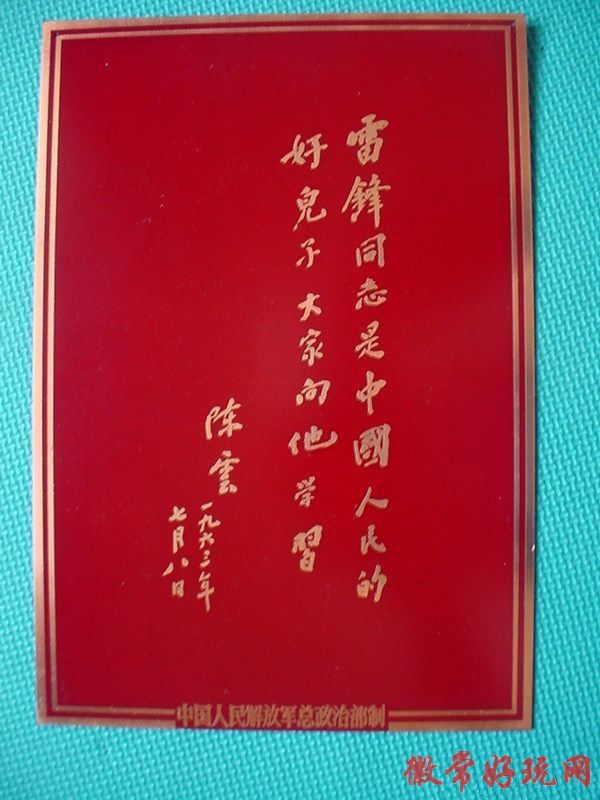 雷鋒同志是中國人民的
好兒子大家向他学習
陈雲
一九六三年
七月八日
中国人民解放军总政治部制
徽常好玩网